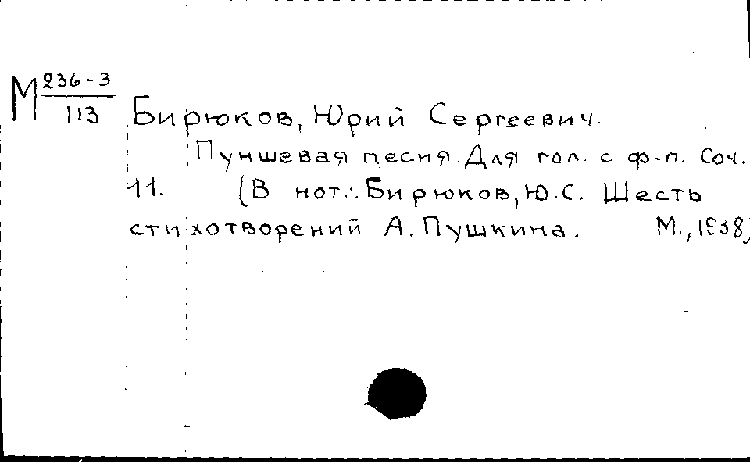 М 236-3
113
Бирюков, Юрий Сергеевич.
Пуншевая песня. Для гол. с ф-п. Соч.
11. (В нот.: Бирюков, Ю.С. Шесть
стихотворений А. Пушкина. М., 1938)